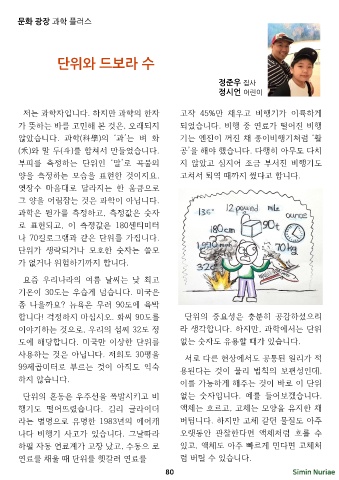 문화 광장 과학 플러스
단위와 드보라 수
정준우 집사
정시언 어린이
저는 과학자입니다. 하지만 과학의 한자
가 뜻하는 바를 고민해 본 것은, 오래되지
않았습니다. 과학(科學)의 '과'는 벼 화
(禾)와 말 두(斗)를 합쳐서 만들었습니다.
부피를 측정하는 단위인 '말'로 곡물의
양을 측정하는 모습을 표현한 것이지요.
엿장수 마음대로 달라지는 한 움큼으로
그 양을 어림잡는 것은 과학이 아닙니다.
과학은 뭔가를 측정하고, 측정값은 숫자
로 표현되고, 이 측정값은 180센티미터
나 70킬로그램과 같은 단위를 가집니다.
단위가 생략되거나 모호한 숫자는 쓸모
가 없거나 위험하기까지 합니다.
요즘 우리나라의 여름 날씨는 낮 최고
기온이 30도는 우습게 넘습니다. 미국은
좀 나을까요? 뉴욕은 무려 90도에 육박
합니다! 걱정하지 마십시오. 화씨 90도를
이야기하는 것으로, 우리의 섭씨 32도 정
도에 해당합니다. 미국만 이상한 단위를
사용하는 것은 아닙니다. 저희도 30평을
99제곱미터로 부르는 것이 아직도 익숙
하지 않습니다.
단위의 혼동은 우주선을 폭발시키고 비
행기도 떨어뜨렸습니다. 김리 글라이더
라는 별명으로 유명한 1983년의 에어캐
나다 비행기 사고가 있습니다. 그날따라
하필 자동 연료계가 고장 났고, 수동으로
연료를 채울 때 단위를 헷갈려 연료를
고작 45%만 채우고 비행기가 이륙하게
되었습니다. 비행 중 연료가 떨어진 비행
기는 엔진이 꺼진 채 종이비행기처럼 '활
공'을 해야 했습니다. 다행히 아무도 다치
지 않았고 심지어 조금 부서진 비행기도
고쳐서 퇴역 때까지 썼다고 합니다.
12 pound mile
ounce
180cm
90℃
70kg
단위의 중요성은 충분히 공감하셨으리
라 생각합니다. 하지만, 과학에서는 단위
없는 숫자도 유용할 때가 있습니다.
서로 다른 현상에서도 공통된 원리가 적
용된다는 것이 물리 법칙의 보편성인데,
이를 가능하게 해주는 것이 바로 이 단위
없는 숫자입니다. 예를 들어보겠습니다.
액체는 흐르고, 고체는 모양을 유지한 채
버팁니다. 하지만 고체 같던 물질도 아주
오랫동안 관찰한다면 액체처럼 흐를 수
있고, 액체도 아주 빠르게 민다면 고체처
럼 버틸 수 있습니다.
80 Simin Nuriae